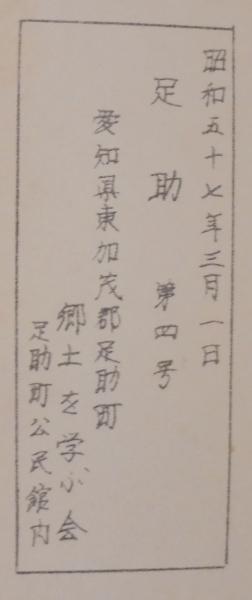 昭和五十七年三月一日
足助 第四号
愛知県東加茂郡足助町
郷土を学ぶ会
足助町公民館内